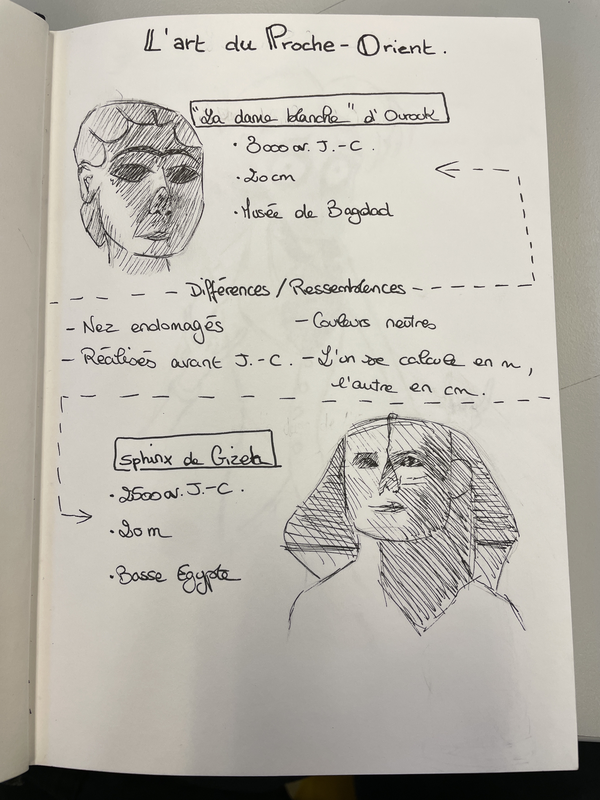 L'art du Proche-Orient.
"La dame blanche" d'Ourouk
• 3000 av. J.-C.
• 20 cm
• Musée de Bagdad
Différences / Ressemblences
- Nez endomagés - Couleurs neûtres
- Réalisés avant J.-C. - L'un se calcule en m,
l'autre en cm.
Sphinx de Gizeh
• 2500 av. J.-C.
• 20 m
• Basse Égypte